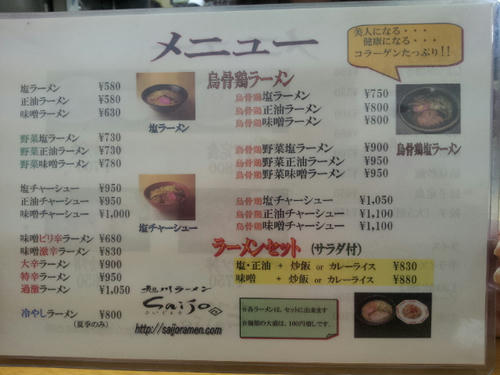 メニュー
美人になる・・・
健康になる・・・
コラーゲンたっぷり!!
塩ラーメン ¥580
正油ラーメン ¥580
味噌ラーメン ¥630
野菜塩ラーメン ¥730
野菜正油ラーメン ¥730
野菜味噌ラーメン ¥780
塩チャーシュー ¥950
正油チャーシュー ¥950
味噌チャーシュー ¥1,000
味噌ピリ辛ラーメン ¥680
味噌激辛ラーメン ¥830
大辛ラーメン ¥900
特辛ラーメン ¥950
過激ラーメン ¥1,050
冷やしラーメン ¥800
(夏季のみ)
塩ラーメン
塩チャーシュー
旭川ラーメン
Saijo
さいじょう
http://saijoramen.com/
烏骨鶏ラーメン
烏骨鶏塩ラーメン ¥750
烏骨鶏正油ラーメン ¥800
烏骨鶏味噌ラーメン ¥800
烏骨鶏塩ラーメン
烏骨鶏野菜塩ラーメン ¥900
烏骨鶏野菜正油ラーメン ¥950
烏骨鶏野菜味噌ラーメン ¥950
烏骨鶏塩チャーシュー ¥1,050
烏骨鶏正油チャーシュー ¥1,100
烏骨鶏味噌チャーシュー ¥1,100
ラーメンセット (サラダ付)
塩・正油 + 炒飯 or カレーライス ¥830
味噌 + 炒飯 or カレーライス ¥880
※各ラーメンは、セットに出来ます
※麺類の大盛は、100円増しです。